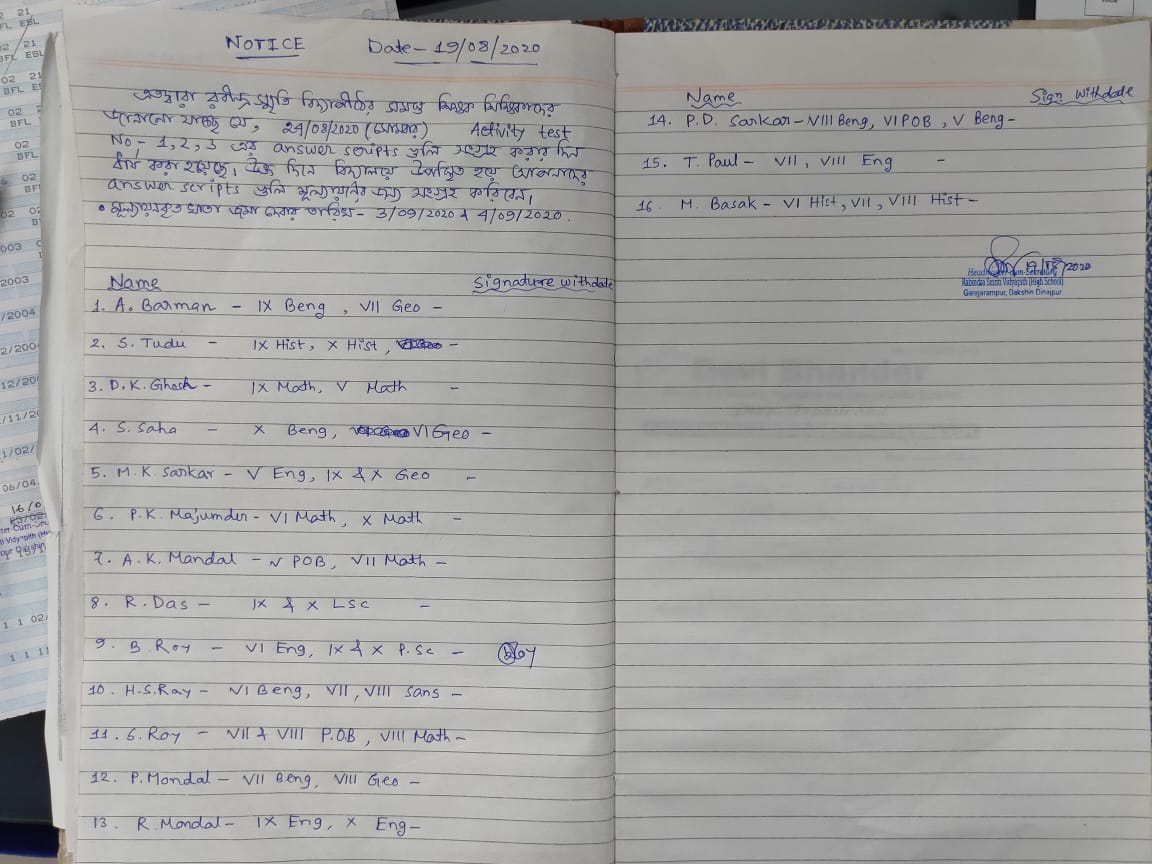 NOTICE Date- 19/08/2020
এতদ্বারা রবীন্দ্র স্মৃতি বিদ্যাপীঠের সমস্ত শিক্ষক শিক্ষিকাদের
জানানো যাচ্ছে যে, 24/08/2020 (সোমবার) Activity test
No - 1, 2, 3 এর answer scripts গুলি সংগ্রহ করার দিন
ধার্য করা হয়েছে। উক্ত দিনে বিদ্যালয়ে উপস্থিত হয়ে আপনাদের
answer scripts গুলি মূল্যায়নের জন্য সংগ্রহ করিবেন।
• মূল্যায়নকৃত খাতা জমা দেবার তারিখ - 3/09/2020 & 4/09/2020.
Name Signature with date
1. A. Barman - IX Beng, VII Geo -
2. S. Tudu - IX Hist, X Hist, -
3. D.K. Ghosh - IX Math, V Math -
4. S. Saha - X Beng, VI Geo -
5. M.K. Sarkar - V Eng, IX & X Geo -
6. P.K. Majumder - VI Math, X Math -
7. A.K. Mandal - V POB, VII Math -
8. R. Das - IX & X LSc -
9. B. Roy - VI Eng, IX & X P.Sc - BRoy
10. H.S. Ray - VI Beng, VII, VIII Sans -
11. S. Roy - VII & VIII P.OB, VIII Math -
12. P. Mondal - VII Beng, VIII Geo -
13. R. Mondal - IX Eng, X Eng -
Name Sign with date
14. P.D. Sarkar - VIII Beng, VI POB, V Beng -
15. T. Paul - VII, VIII Eng -
16. M. Basak - VI Hist, VII, VIII Hist -
19/08/2020
Headmaster-cum-Secretary
Rabindra Smriti Vidyapith (High School)
Gangarampur, Dakshin Dinajpur